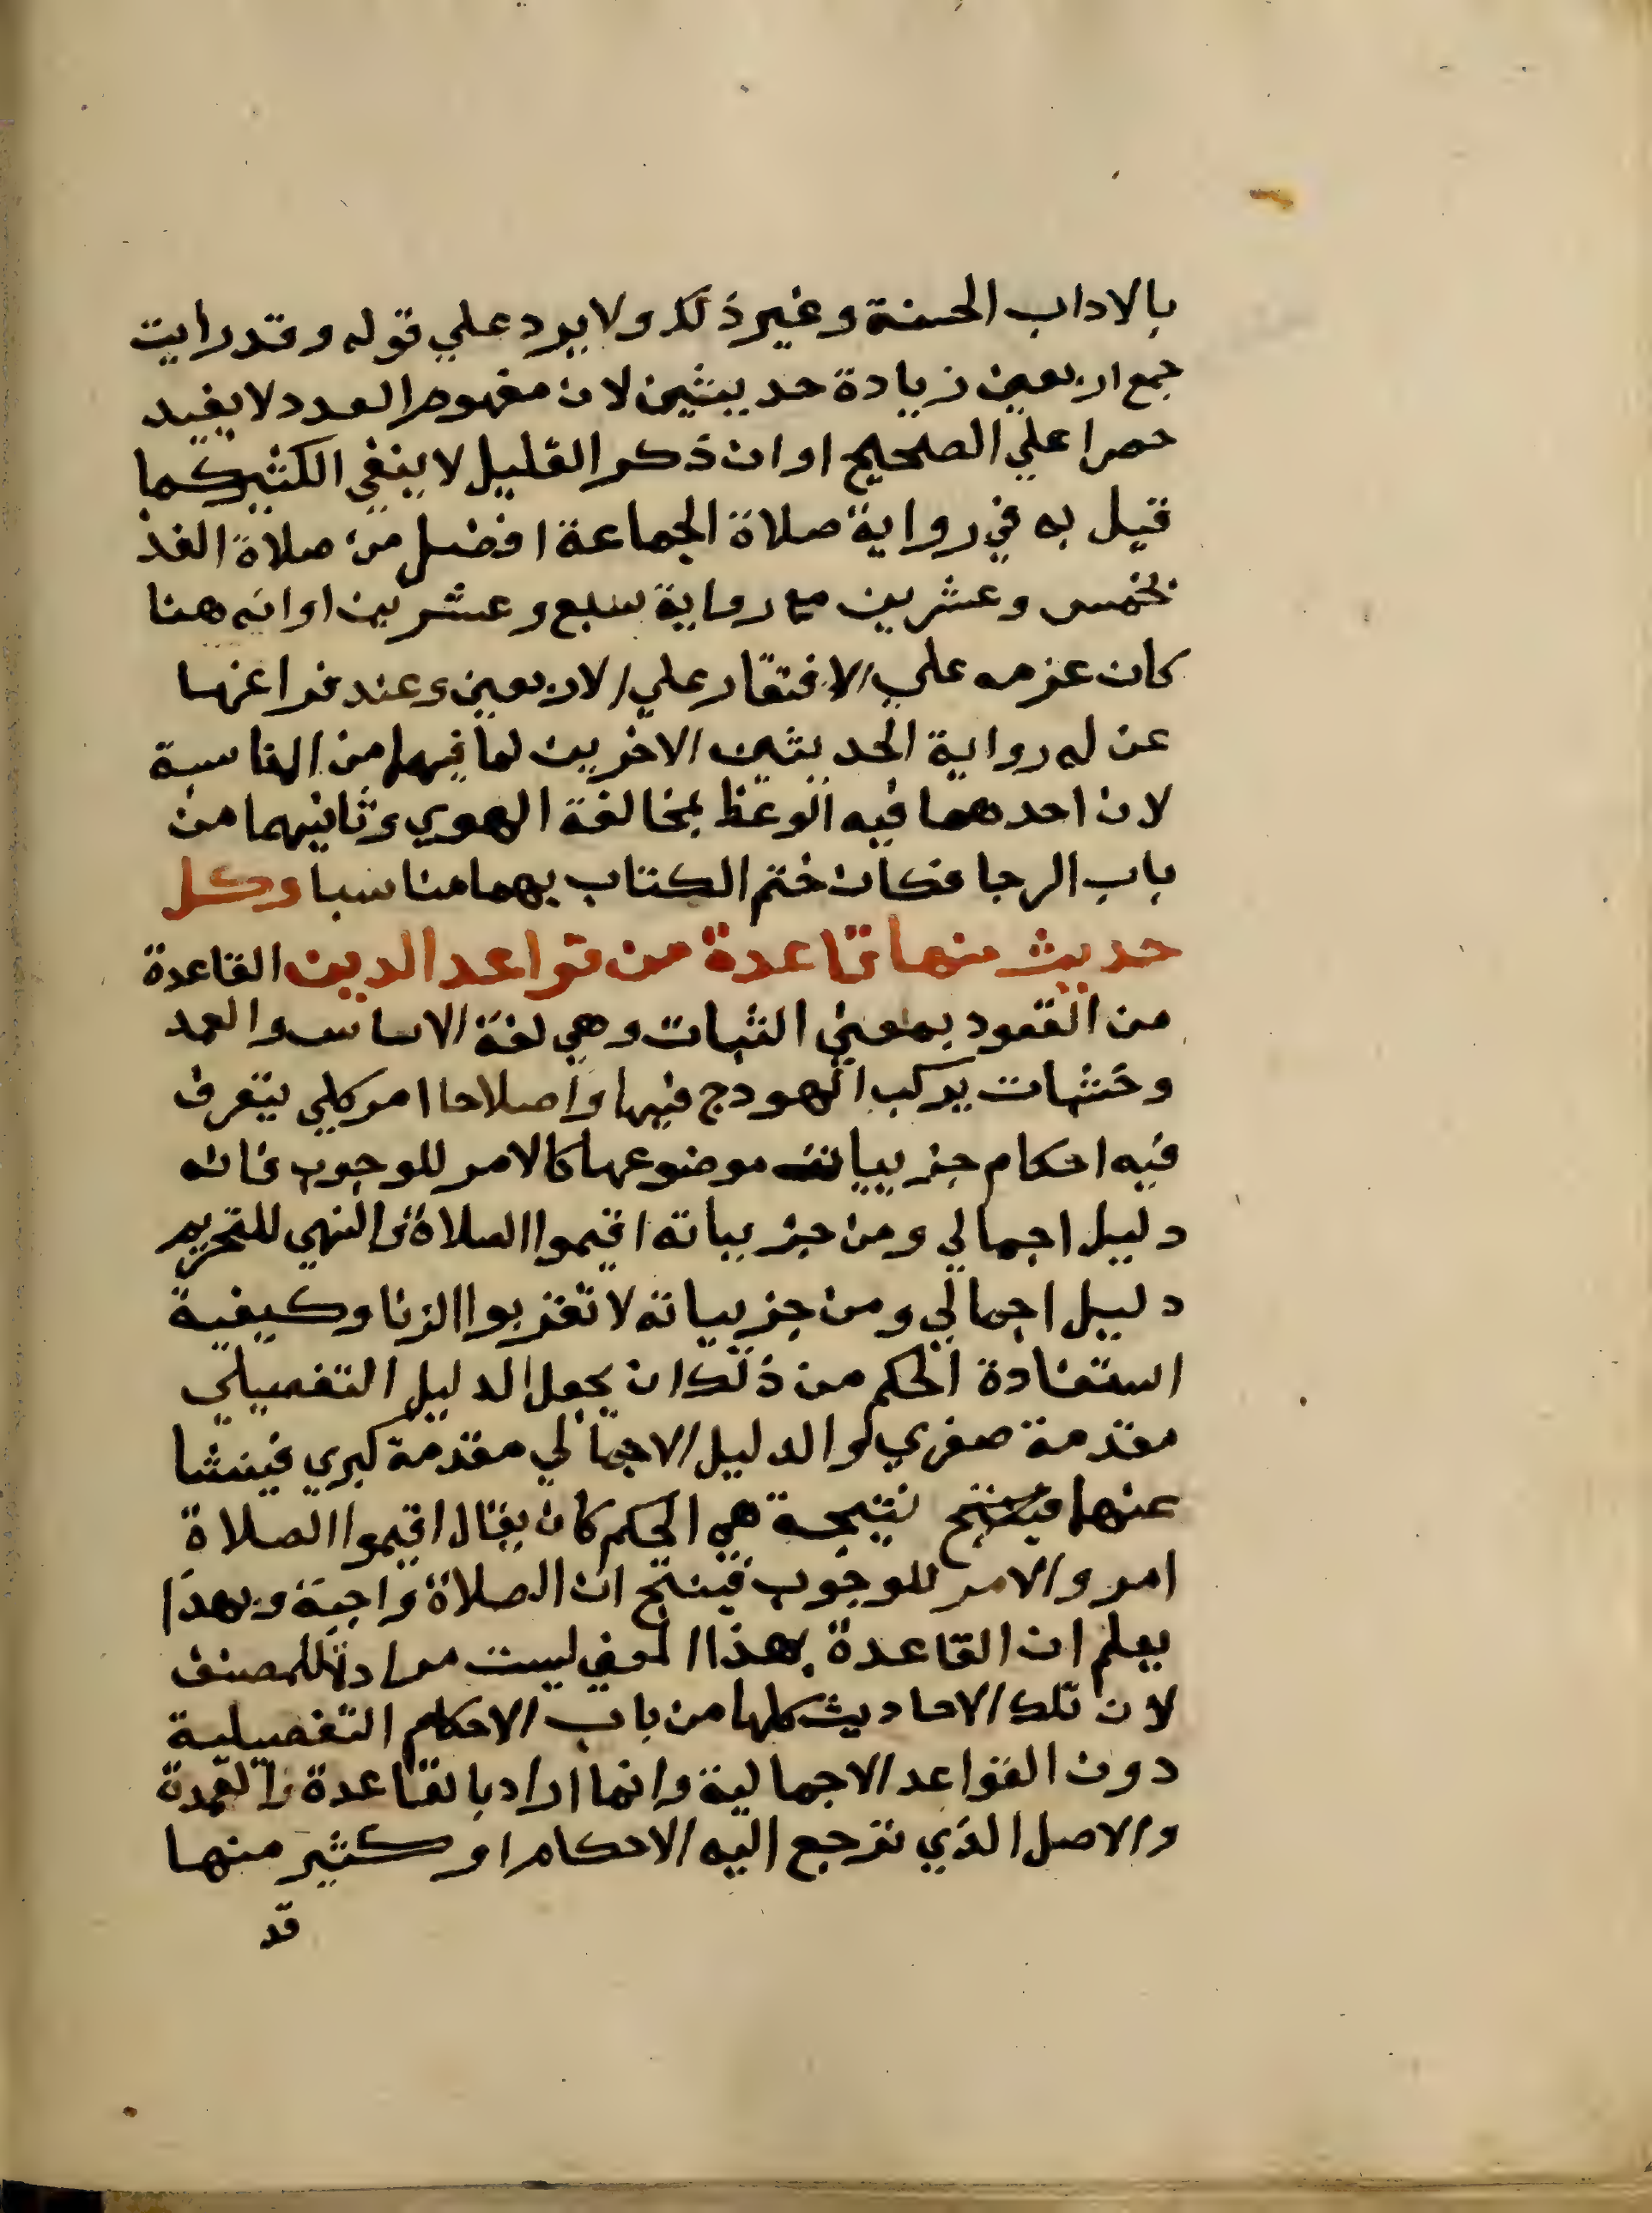 بالاداب الحسنة وغير ذلك ولا يرد علي قوله وقد رايت
جمع اربعين زيادة حديثين لان مفهوم العدد لا يفيد
حصرا علي الصحيح او ان ذكر القليل لا ينفي الكثير كما
قيل به في رواية صلاة الجماعة افضل من صلاة الفذ
بخمس وعشرين مع رواية سبع وعشرين او انه هنا
كان عزمه علي الاقتقار علي الاربعين وعند فراغها
عن له رواية الحديثين الاخرين لما فيهما من المناسبة
لان احدهما فيه الوعظ بمخالفة الهوي وثانيهما من
باب الرجا فكان ختم الكتاب بهما مناسبا وكل
حديث منها قاعدة من قواعد الدين القاعدة
من القعود بمعني الثبات وهي لغة الاساس والعمد
وخشبات يركب الهودج فيها واصلاحا امر كلي يتعرف
فيه احكام جزييات موضوعها كالامر للوجوب فانه
دليل اجمالي ومن جزيياته اقيموا الصلاة والنهي للتحريم
دليل اجمالي ومن جزيياته لا تقربوا الزنا وكيفية
استفادة الحكم من ذلك ان يجعل الدليل التفصيلي
مقدمة صغري والدليل الاجمالي مقدمة كبري فينشا
عنهما نتيجة هي الحكم كان يقال اقيموا الصلاة
امر والامر للوجوب فينتج ان الصلاة واجبة وبهذا
يعلم ان القاعدة بهذا المعني ليست مرادة للمصنف
لان تلك الاحاديث كلها من باب الاحكام التفصيلية
دون القواعد الاجمالية وانما اراد بالقاعدة العمدة
والاصل الذي ترجع اليه الاحكام او كثير منها
قد